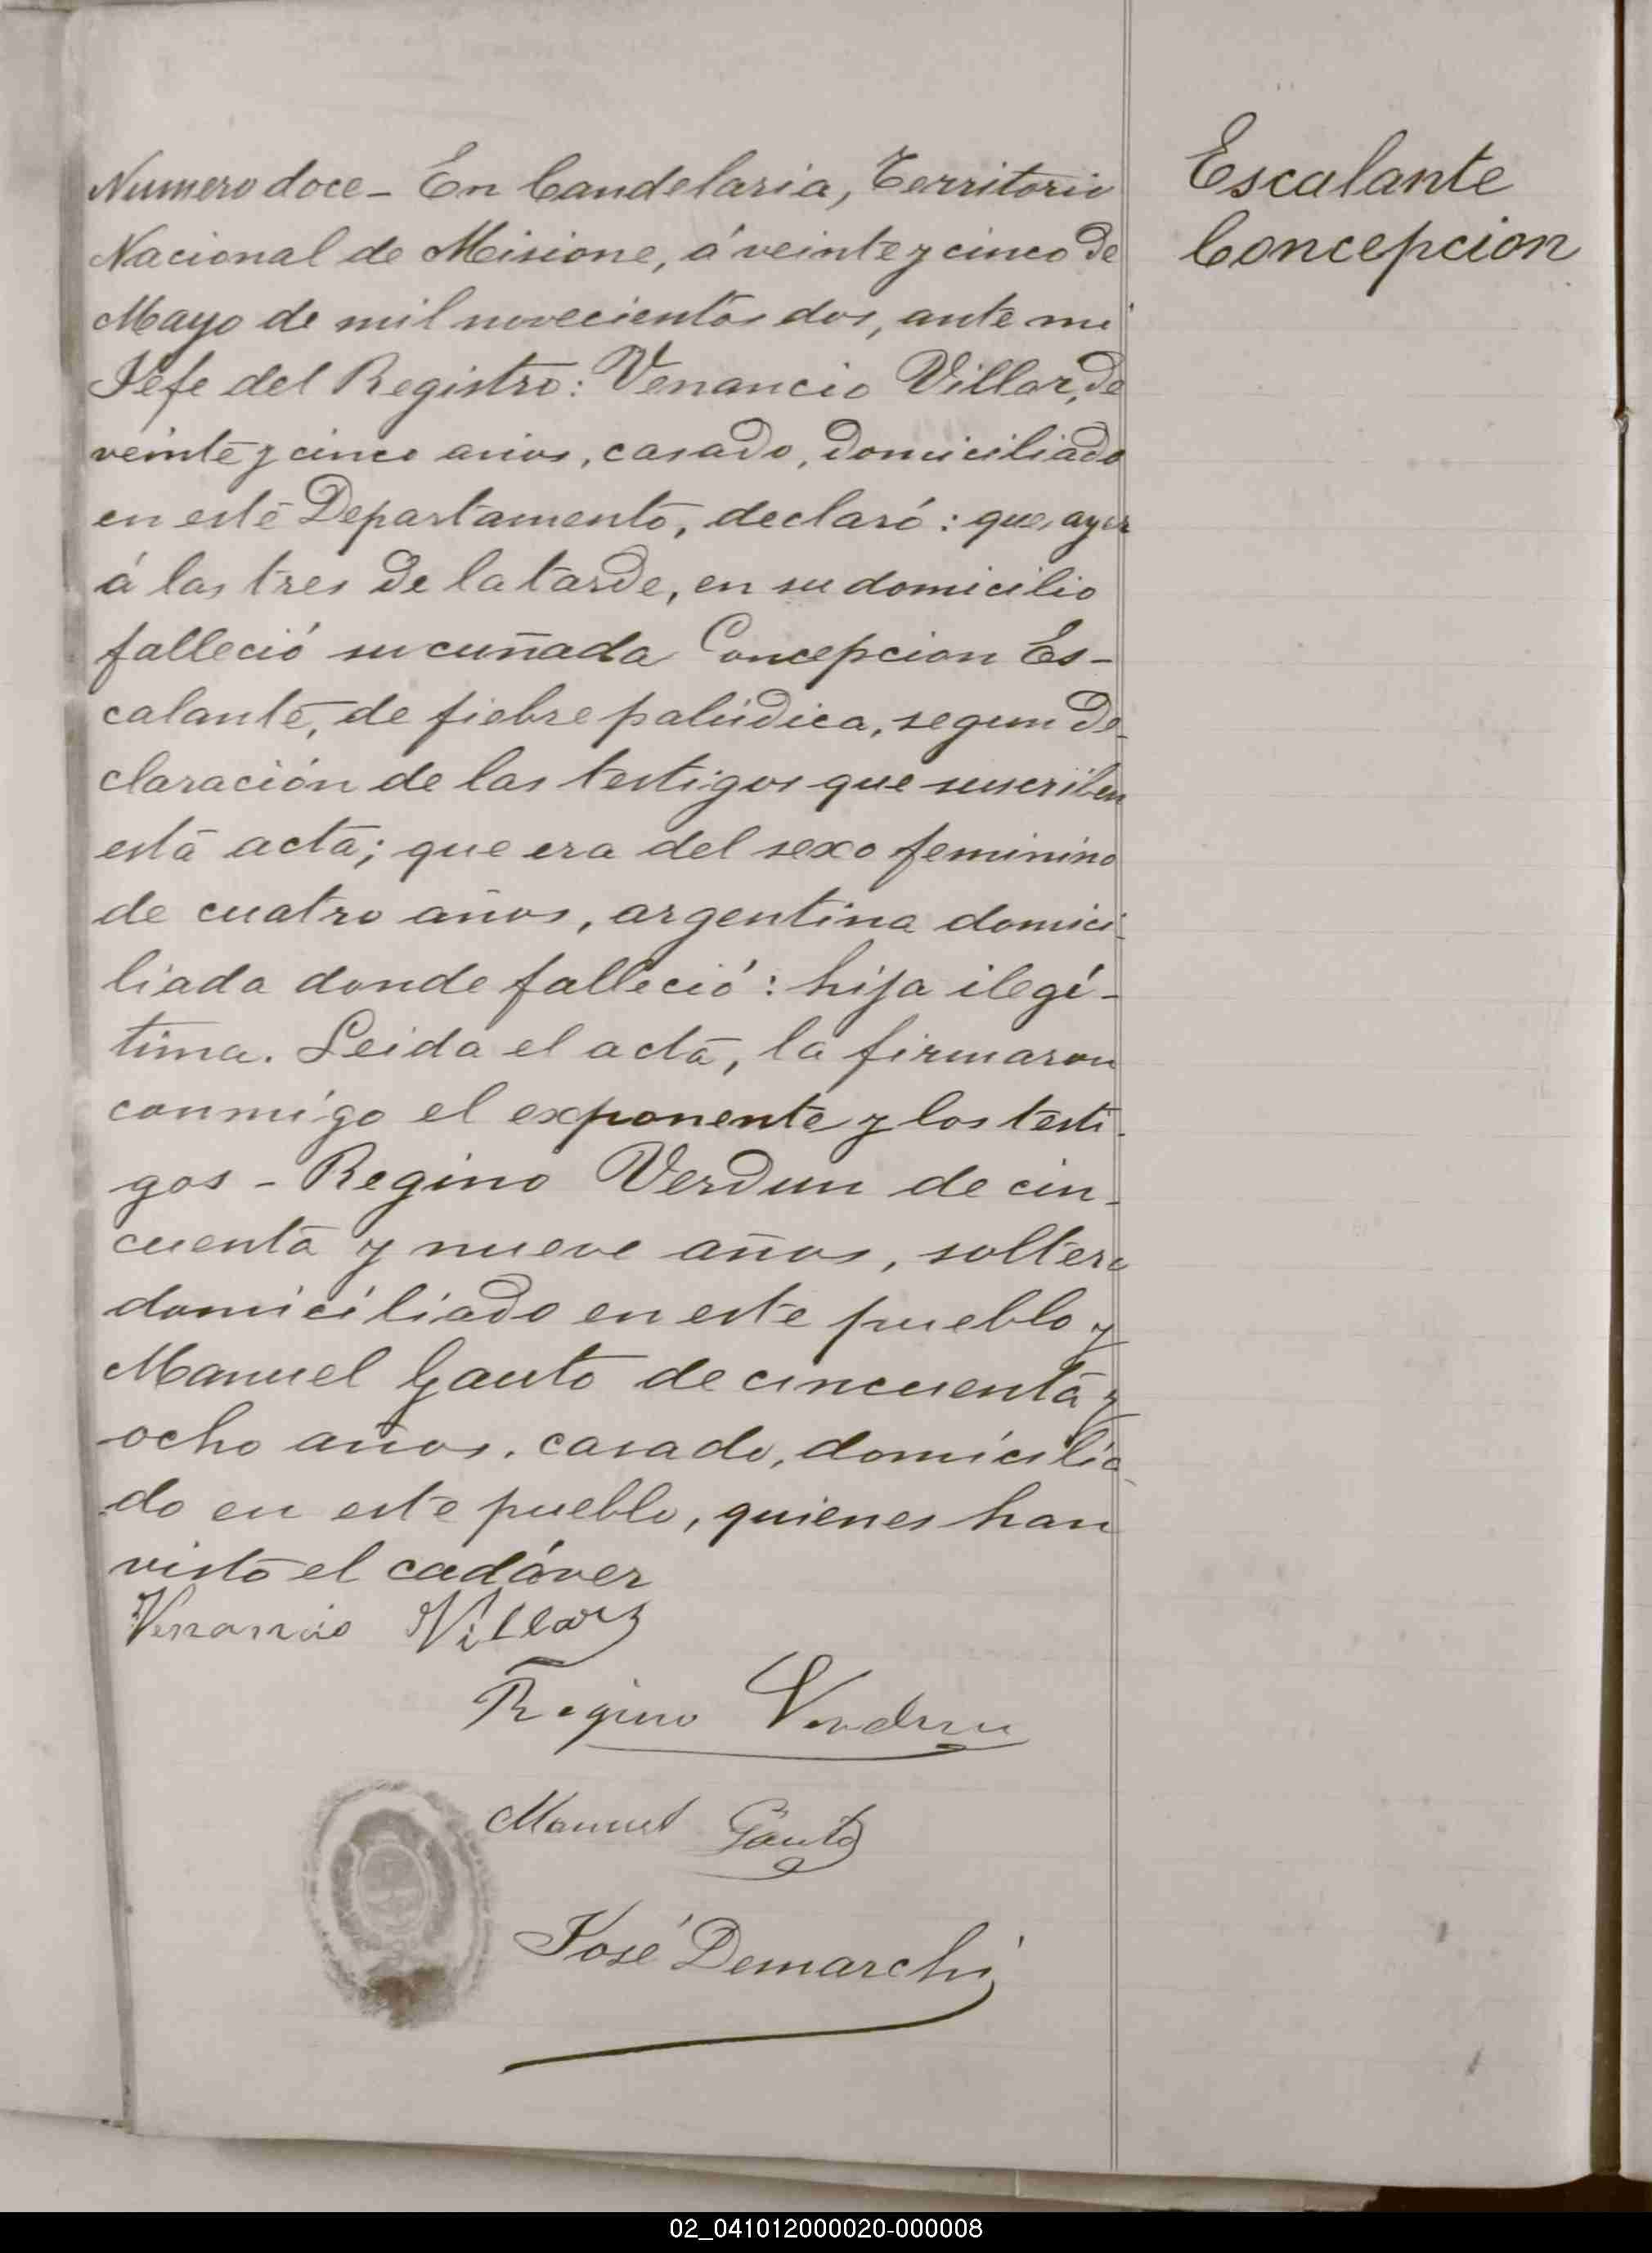 Numero doce - En Candelaria, Territorio
Nacional de Misione, á veinte y cinco de
Mayo de mil novecientos dos, ante mi
Jefe del Registro: Venancio Villar, de
veinte y cinco años, casado, domiciliado
en este Departamento, declaró: que, ayer
á las tres de la tarde, en su domicilio
falleció su cuñada Concepcion Es-
calante, de fiebre palúdica, segun de-
claración de las testigos que suscriben
esta acta; que era del sexo feminino
de cuatro años, argentina domici-
liada donde falleció: hija ilegí-
tima. Leida el acta, la firmaron
conmigo el exponente y los testi-
gos - Regino Verdun de cin-
cuenta y nueve años, soltero
domiciliado en este pueblo y
Manuel Gauto de cincuenta y
ocho años, casado, domicilia-
do en este pueblo, quienes han
visto el cadáver
Venancio Villar
Regino Verdun
Manuel Gauto
José Demarchi
Escalante
Concepcion
02_041012000020-000008